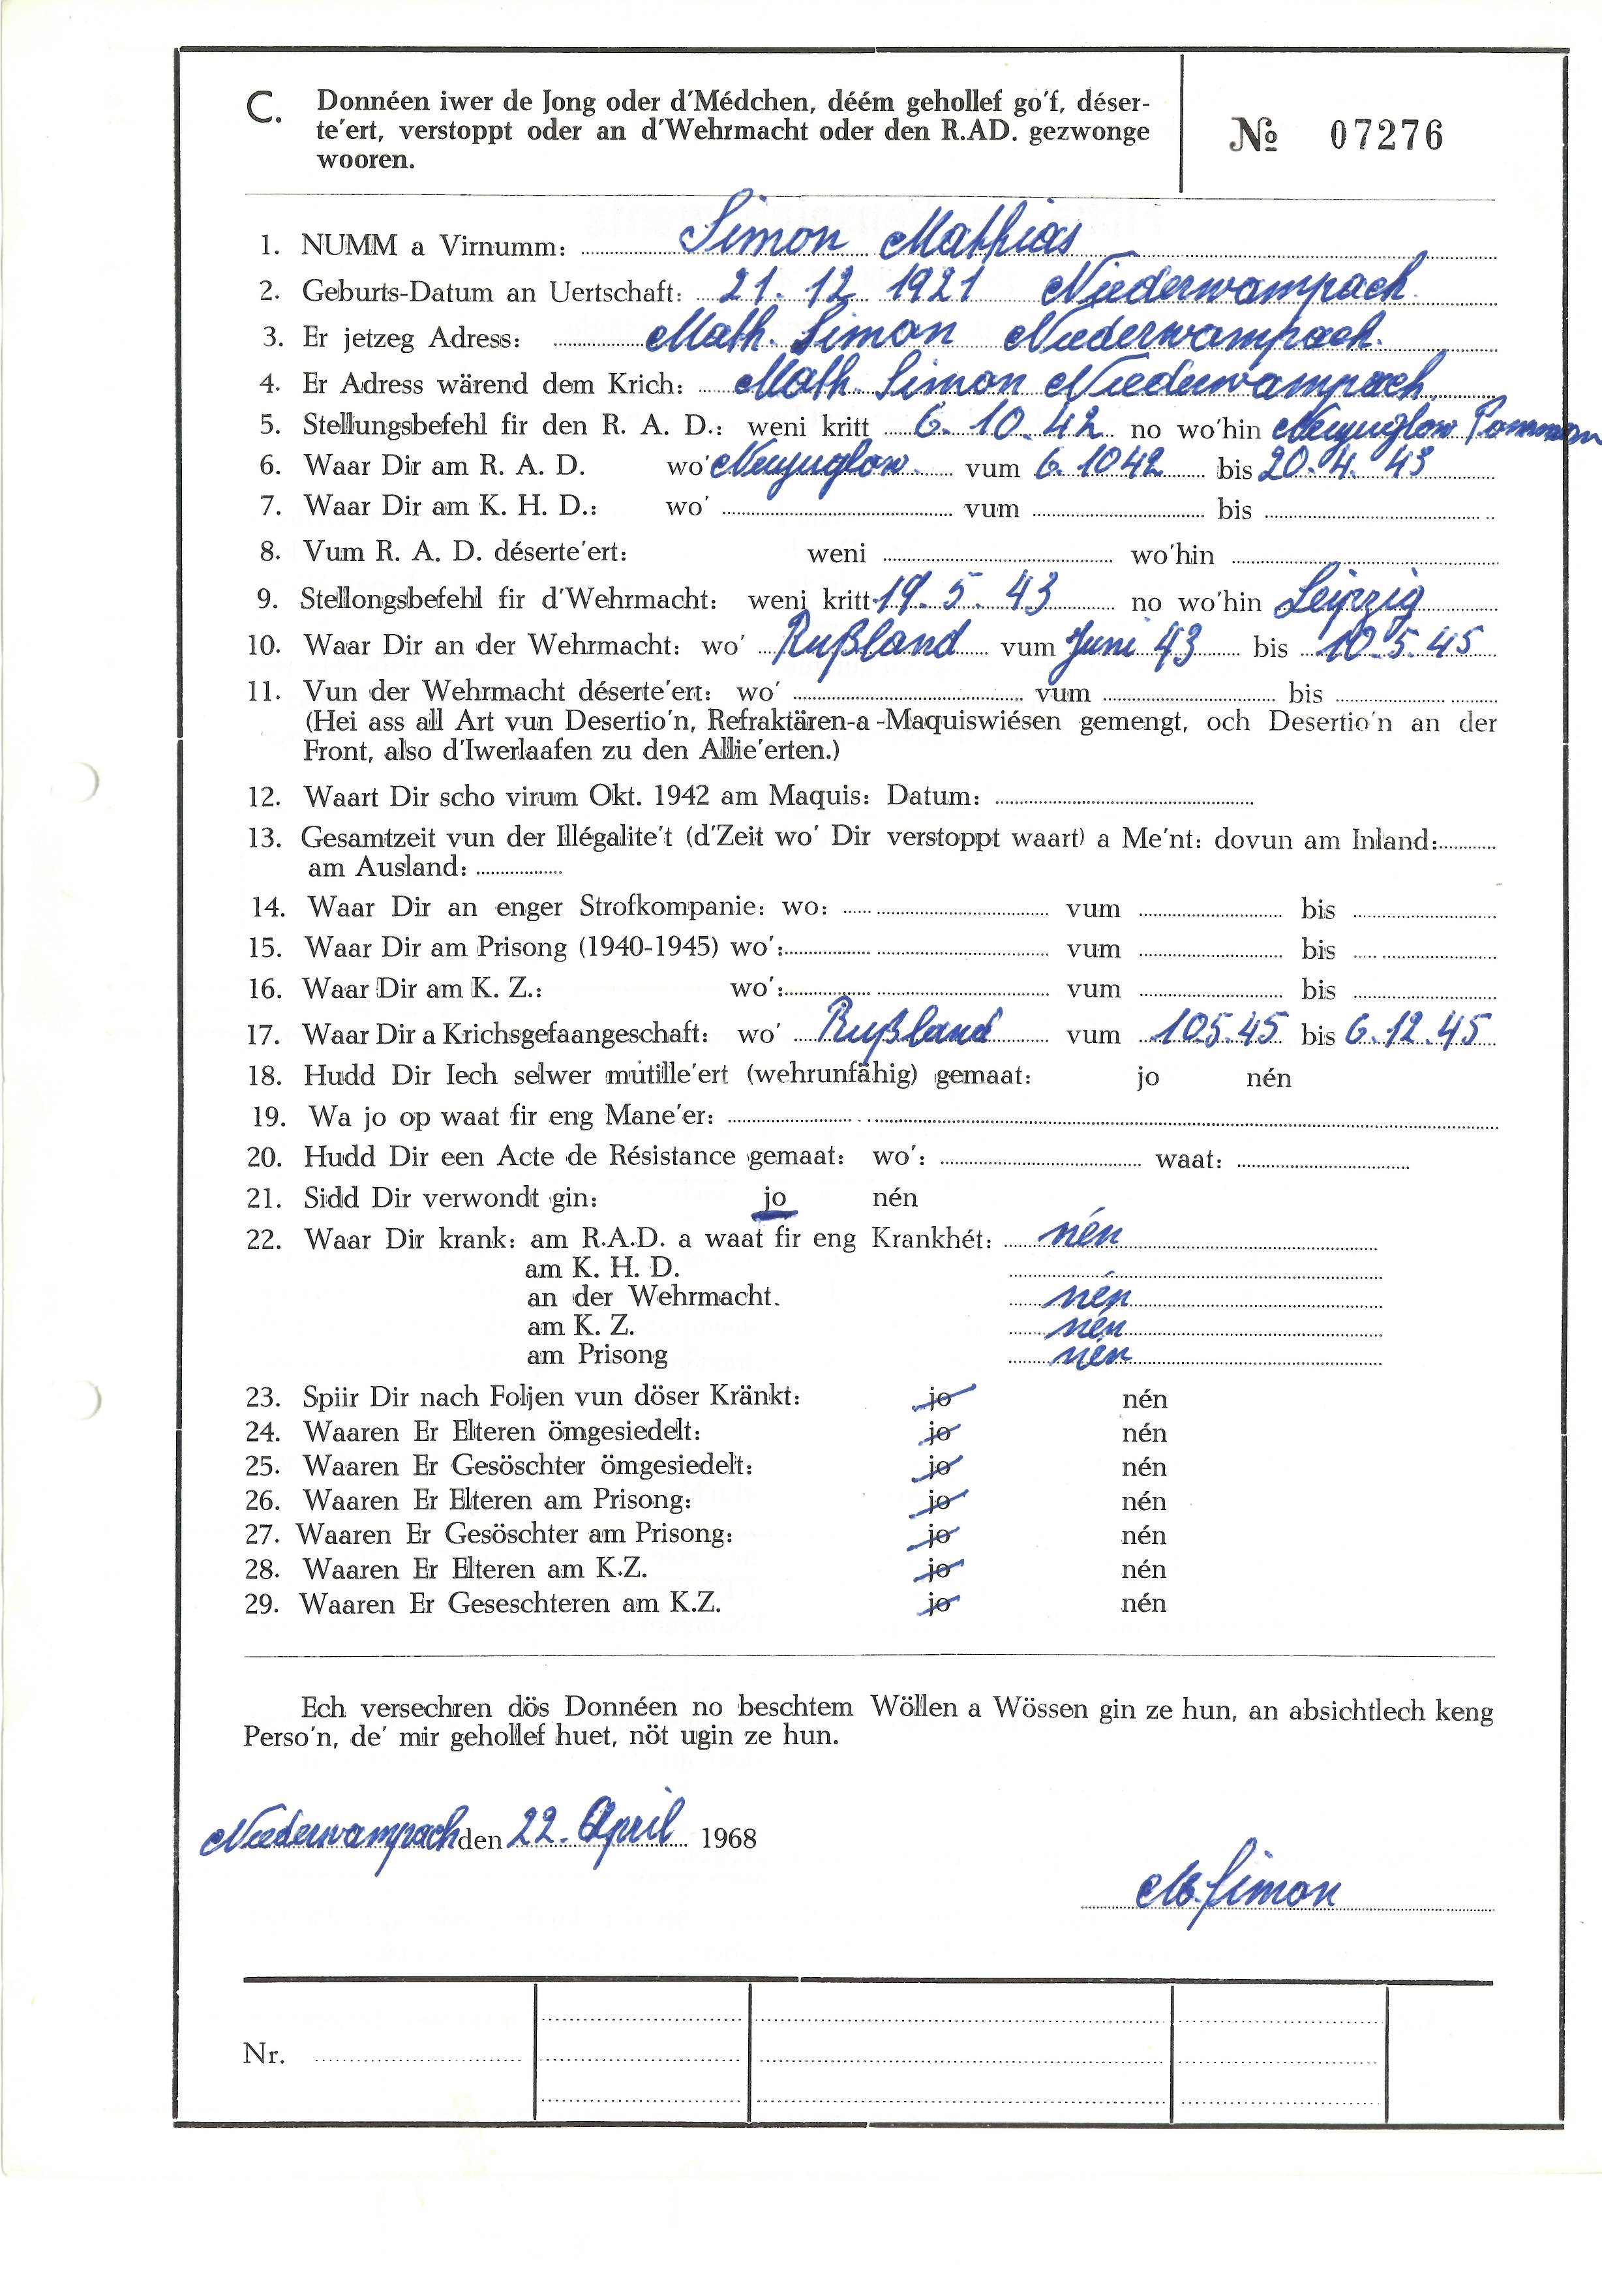 C. Donnéen iwer de Jong oder d'Médchen, déém gehollef go'f, déser-
te'ert, verstoppt oder an d'Wehrmacht oder den R.AD. gezwonge
wooren.
№ 07276
1. NUMM a Virnumm: Simon Mathias
2. Geburts-Datum an Uertschaft: 21. 12 1921 Niederwampach
3. Er jetzeg Adress: Math. Simon Niederwampach.
4. Er Adress wärend dem Krich: Math. Simon Niederwampach
5. Stellungsbefehl fir den R. A. D.: weni kritt 6. 10. 42 no wo'hin
6. Waar Dir am R. A. D. wo' vum 6. 10 42 bis 20. 4. 43
7. Waar Dir am K. H. D.: wo' vum bis
8. Vum R. A. D. déserte'ert: weni wo'hin
9. Stellongsbefehl fir d'Wehrmacht: weni kritt 19. 5. 43 no wo'hin Leipzig
10. Waar Dir an der Wehrmacht: wo' Rußland vum Juni 43 bis 10. 5. 45
11. Vun der Wehrmacht déserte'ert: wo' vum bis
(Hei ass all Art vun Desertio'n, Refraktären-a-Maquiswiésen gemengt, och Desertio'n an der
Front, also d'Iwerlaafen zu den Allie'erten.)
12. Waart Dir scho virum Okt. 1942 am Maquis: Datum:
13. Gesamtzeit vun der Illégalite't (d'Zeit wo' Dir verstoppt waart) a Me'nt: dovun am Inland:
am Ausland:
14. Waar Dir an enger Strofkompanie: wo: vum bis
15. Waar Dir am Prisong (1940-1945) wo': vum bis
16. Waar Dir am K. Z.: wo': vum bis
17. Waar Dir a Krichsgefaangeschaft: wo' Rußland vum 10.5.45 bis 6.12.45
18. Hudd Dir Iech selwer mutille'ert (wehrunfähig) gemaat: jo nén
19. Wa jo op waat fir eng Mane'er:
20. Hudd Dir een Acte de Résistance gemaat: wo': waat:
21. Sidd Dir verwondt gin: jo nén
22. Waar Dir krank: am R.A.D. a waat fir eng Krankhét: nén
am K. H. D.
an der Wehrmacht. nén
am K. Z. nén
am Prisong nén
23. Spiir Dir nach Foljen vun döser Kränkt: jo nén
24. Waaren Er Elteren ömgesiedelt: jo nén
25. Waaren Er Gesöschter ömgesiedelt: jo nén
26. Waaren Er Elteren am Prisong: jo nén
27. Waaren Er Gesöschter am Prisong: jo nén
28. Waaren Er Elteren am K.Z. jo nén
29. Waaren Er Geseschteren am K.Z. jo nén
Ech versechren dös Donnéen no beschtem Wöllen a Wössen gin ze hun, an absichtlech keng
Perso'n, de' mir gehollef huet, nöt ugin ze hun.
Niederwampach den 22. April 1968
M. Simon
Nr.